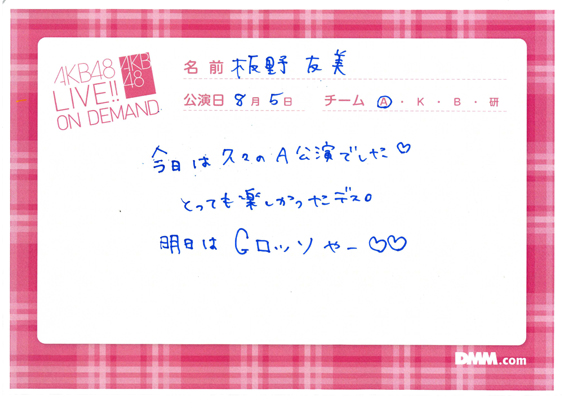 AKB48
LIVE!!
ON DEMAND
AKB
48
名前 板野 友美
公演日 8月5日 チーム A・K・B・研
今日は久々のA公演でした♡
とっても楽しかったデス。
明日はGロッソやー♡♡
DMM.com